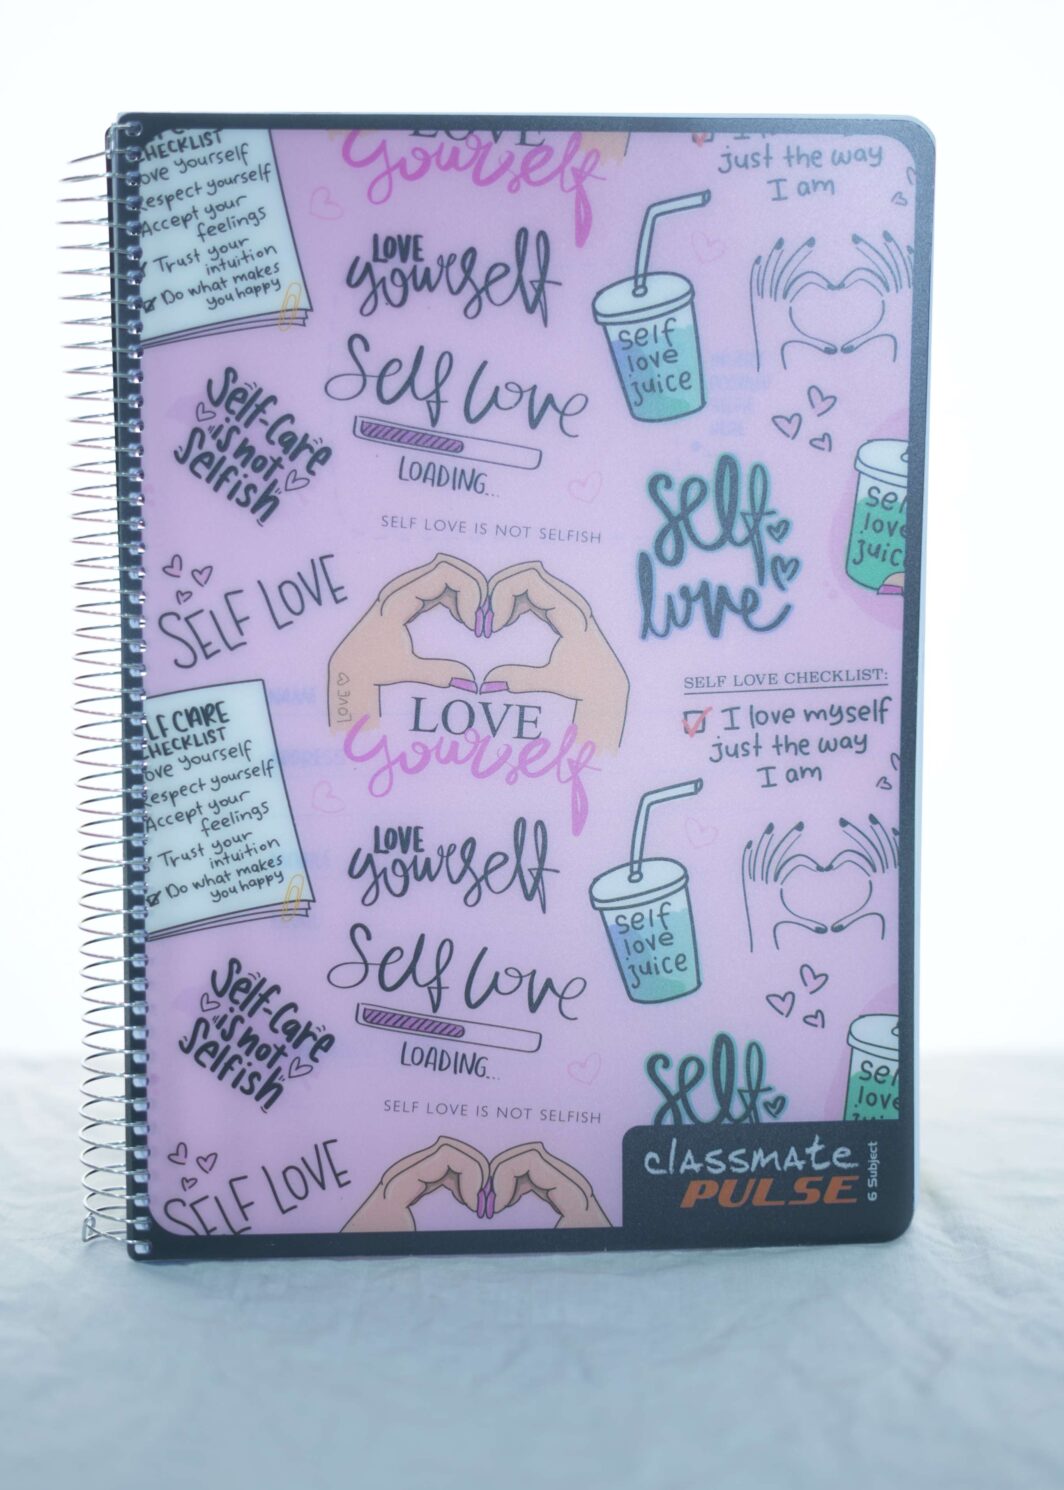 CHECKLIST
Love yourself
Respect yourself
Accept your
feelings
Trust your
intuition
Do what makes
you happy
LOVE
yourself
just the way
I am
LOVE
yourself
self
love
juice
Self love
LOADING...
Self-Care
is not
Selfish
SELF LOVE IS NOT SELFISH
self
love
self
love
juice
SELF LOVE
LOVE
LOVE
yourself
SELF LOVE CHECKLIST:
I love myself
just the way
I am
SELF CARE
CHECKLIST
Love yourself
Respect yourself
Accept your
feelings
Trust your
intuition
Do what makes
you happy
LOVE
yourself
self
love
juice
Self love
LOADING...
Self-Care
is not
Selfish
SELF LOVE IS NOT SELFISH
self
self
love
SELF LOVE
classmate
PULSE
6 Subject